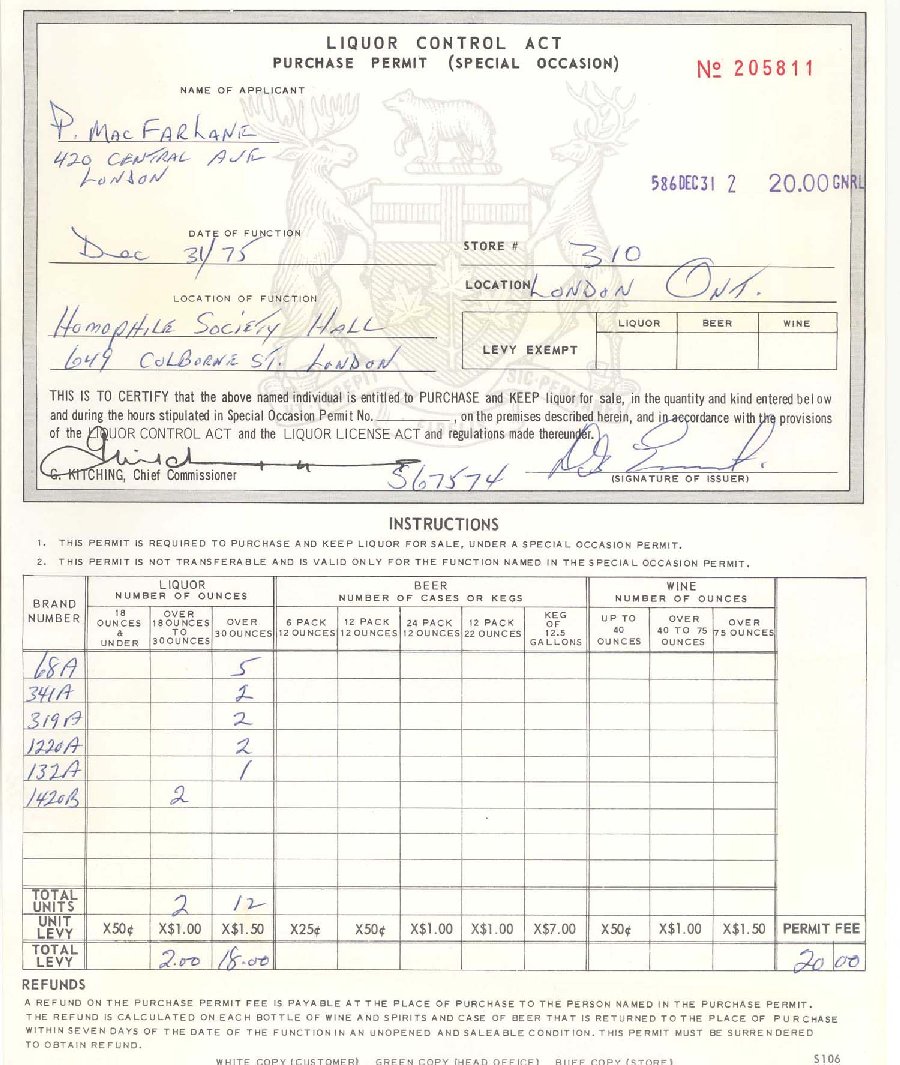 LIQUOR CONTROL ACT
PURCHASE PERMIT (SPECIAL OCCASION)
Nº 205811
NAME OF APPLICANT
P. MACFARLANE
420 CENTRAL AVE
LONDON
586DEC31 2 20.00GNRL
DATE OF FUNCTION
Dec 31/75
STORE # 310
LOCATION LONDON ONT.
LOCATION OF FUNCTION
HOMOPHILE SOCIETY HALL
649 COLBORNE ST. LONDON
LIQUOR BEER WINE
LEVY EXEMPT
THIS IS TO CERTIFY that the above named individual is entitled to PURCHASE and KEEP liquor for sale, in the quantity and kind entered below
and during the hours stipulated in Special Occasion Permit No. , on the premises described herein, and in accordance with the provisions
of the LIQUOR CONTROL ACT and the LIQUOR LICENSE ACT and regulations made thereunder.
G. KITCHING, Chief Commissioner
567574
(SIGNATURE OF ISSUER)
INSTRUCTIONS
1. THIS PERMIT IS REQUIRED TO PURCHASE AND KEEP LIQUOR FOR SALE, UNDER A SPECIAL OCCASION PERMIT.
2. THIS PERMIT IS NOT TRANSFERABLE AND IS VALID ONLY FOR THE FUNCTION NAMED IN THE SPECIAL OCCASION PERMIT.
BRAND NUMBER
LIQUOR
NUMBER OF OUNCES
BEER
NUMBER OF CASES OR KEGS
WINE
NUMBER OF OUNCES
18 OUNCES & UNDER
OVER 18 OUNCES TO 30 OUNCES
OVER 30 OUNCES
6 PACK 12 OUNCES
12 PACK 12 OUNCES
24 PACK 12 OUNCES
12 PACK 22 OUNCES
KEG OF 12.5 GALLONS
UP TO 40 OUNCES
OVER 40 TO 75 OUNCES
OVER 75 OUNCES
68A 5
341A 2
319A 2
1220A 2
132A 1
1420B 2
TOTAL UNITS 2 12
UNIT LEVY X50¢ X$1.00 X$1.50 X25¢ X50¢ X$1.00 X$1.00 X$7.00 X50¢ X$1.00 X$1.50 PERMIT FEE
TOTAL LEVY 2.00 18.00 20 00
REFUNDS
A REFUND ON THE PURCHASE PERMIT FEE IS PAYABLE AT THE PLACE OF PURCHASE TO THE PERSON NAMED IN THE PURCHASE PERMIT.
THE REFUND IS CALCULATED ON EACH BOTTLE OF WINE AND SPIRITS AND CASE OF BEER THAT IS RETURNED TO THE PLACE OF PURCHASE
WITHIN SEVEN DAYS OF THE DATE OF THE FUNCTION IN AN UNOPENED AND SALEABLE CONDITION. THIS PERMIT MUST BE SURRENDERED
TO OBTAIN REFUND.
WHITE COPY (CUSTOMER) GREEN COPY (HEAD OFFICE) BUFF COPY (STORE)
S106